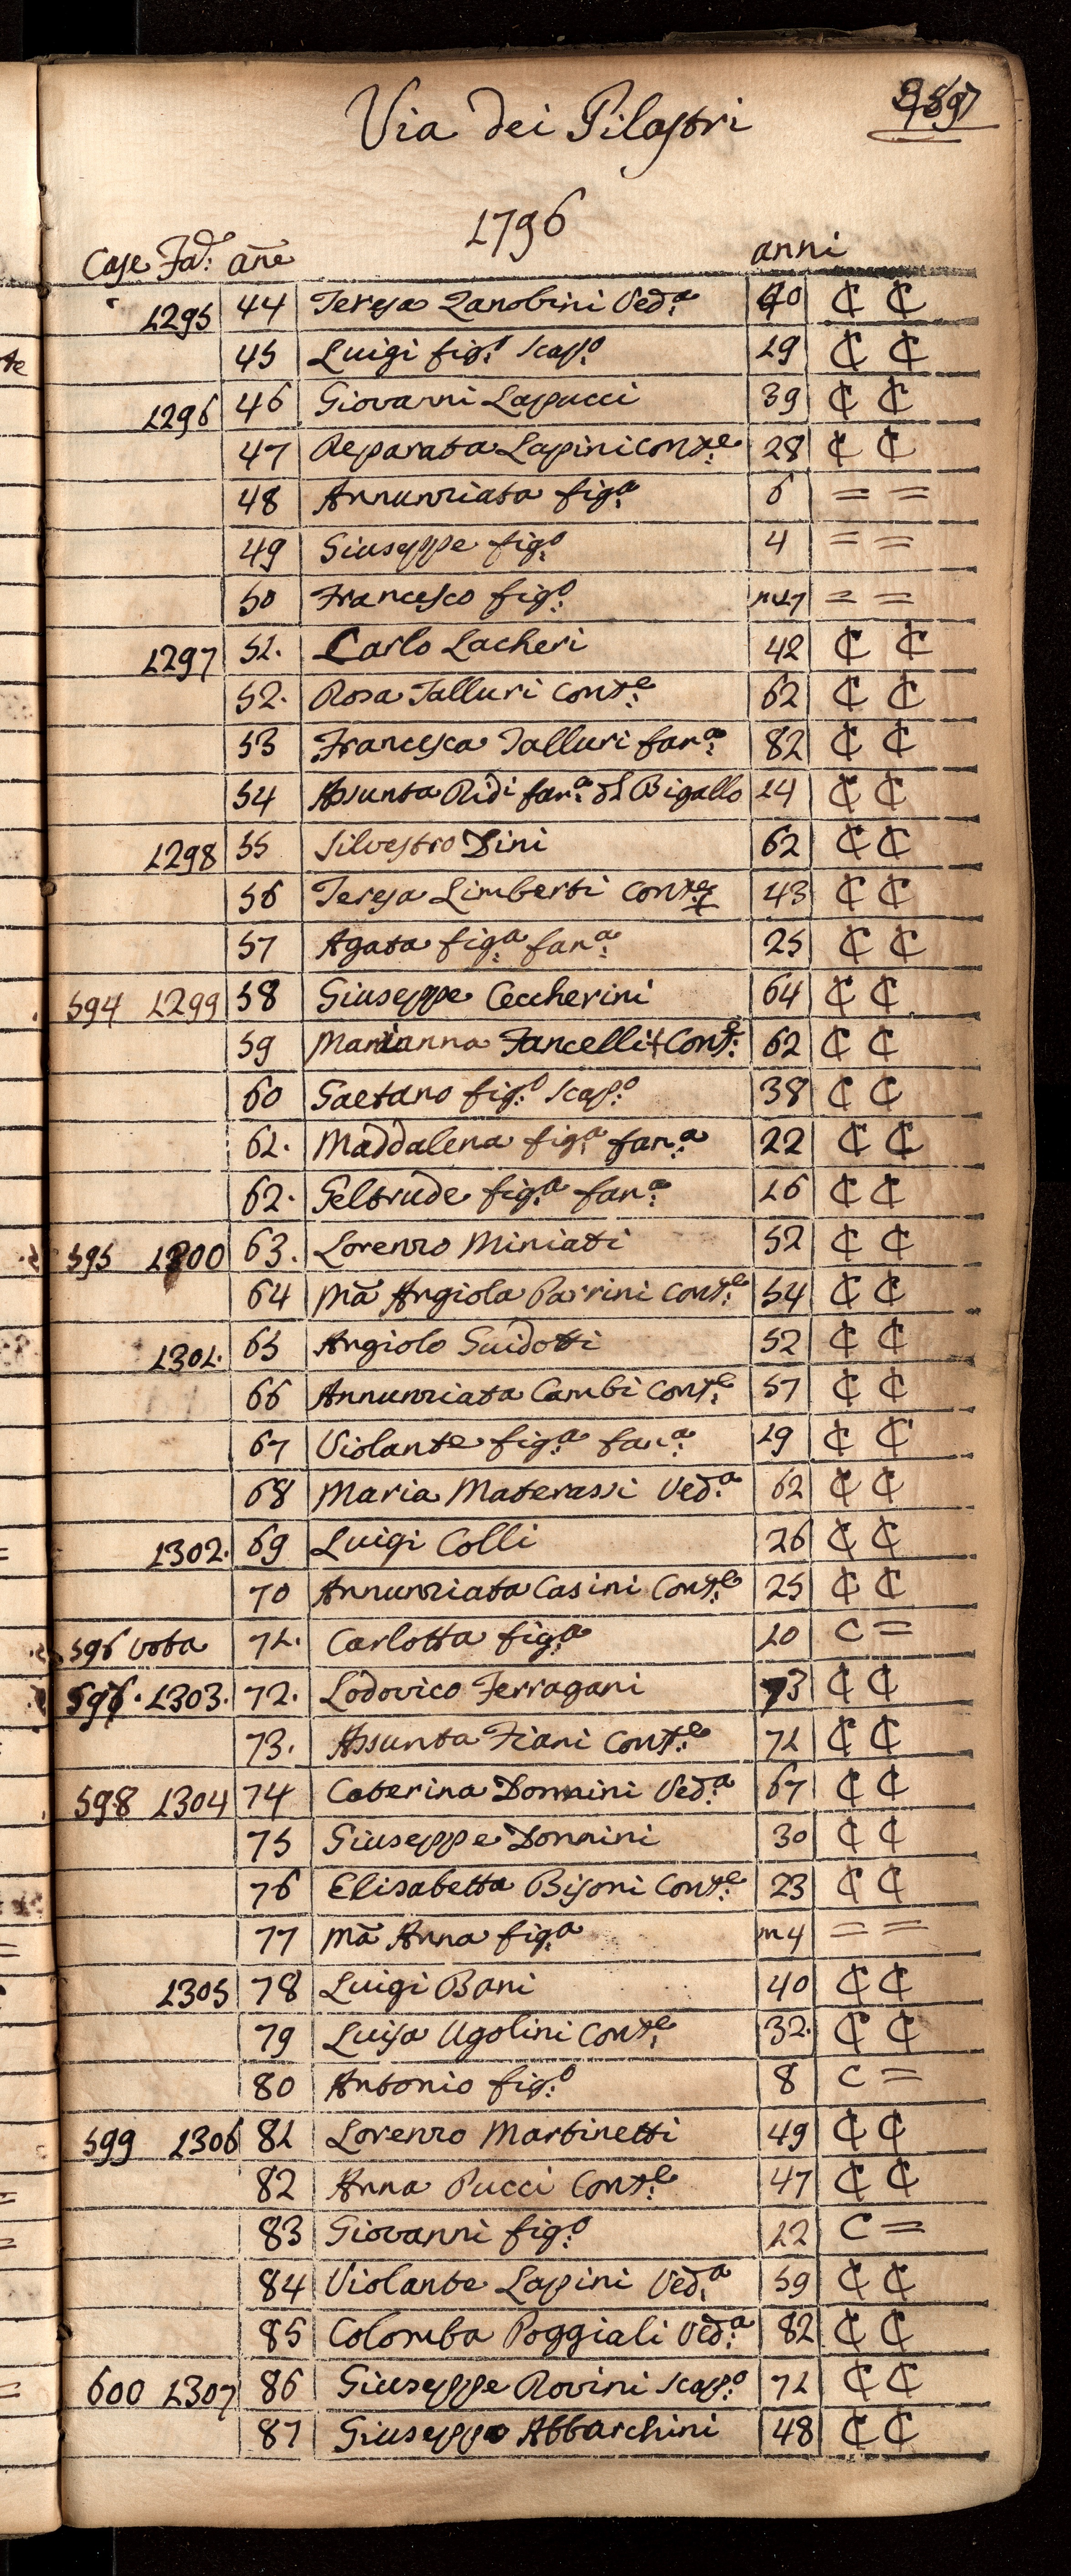 Via dei Pilastri
1796
Case Fa: añe anni
1295 44 Teresa Zanobini Ved:a ₵ ₵
45 Luigi fig:o scap:o 19 ₵ ₵
1296 46 Giovanni Lapucci 39 ₵ ₵
47 Reparata Lapini Cont:e 28 ₵ ₵
48 Annunziata fig:a 6 = =
49 Giuseppe fig:o 4 = =
50 Francesco fig:o m17 = =
1297 51. Carlo Lacheri 42 ₵ ₵
52. Rosa Talluri Cont:e 62 ₵ ₵
53 Francesca Talluri fan:a 82 ₵ ₵
54 Assunta Ridi fan:a dl Bigallo 14 ₵ ₵
1298 55 Silvestro Dini 62 ₵ ₵
56 Teresa Limberti Cont:e 43 ₵ ₵
57 Agata fig:a fan:a 25 ₵ ₵
594 1299 58 Giuseppe Ceccherini 64 ₵ ₵
59 Marianna Fancelli Cont:e 62 ₵ ₵
60 Gaetano fig:o scap:o 38 ₵ ₵
61. Maddalena fig:a fan:a 22 ₵ ₵
62. Geltrude fig:a fan:a 16 ₵ ₵
595 1300 63. Lorenzo Miniati 52 ₵ ₵
64 Mã Angiola Parrini Cont:e 54 ₵ ₵
1301. 65 Angiolo Guidotti 52 ₵ ₵
66 Annunziata Cambi Cont:e 57 ₵ ₵
67 Violante fig:a fan:a 19 ₵ ₵
68 Maria Materassi Ved:a 62 ₵ ₵
1302. 69 Luigi Colli 26 ₵ ₵
70 Annunziata Casini Cont:e 25 ₵ ₵
596 vota 71. Carlotta fig:a 10 C =
597. 1303. 72. Lodovico Ferragani 73 ₵ ₵
73. Assunta Fiani Cont:e 71 ₵ ₵
598 1304 74 Caterina Donnini Ved:a 67 ₵ ₵
75 Giuseppe Donnini 30 ₵ ₵
76 Elisabetta Bisoni Cont:e 23 ₵ ₵
77 Mã Anna fig:a m4 = =
1305 78 Luigi Bani 40 ₵ ₵
79 Luisa Ugolini Cont:e 32. ₵ ₵
80 Antonio fig:o 8 C =
599 1306 81 Lorenzo Martinetti 49 ₵ ₵
82 Anna Pucci Cont:e 47 ₵ ₵
83 Giovanni fig:o 12 C =
84 Violante Lapini Ved:a 59 ₵ ₵
85 Colomba Poggiali Ved:a 82 ₵ ₵
600 1307 86 Giuseppe Rovini scap:o 71 ₵ ₵
87 Giuseppe Abbarchini 48 ₵ ₵